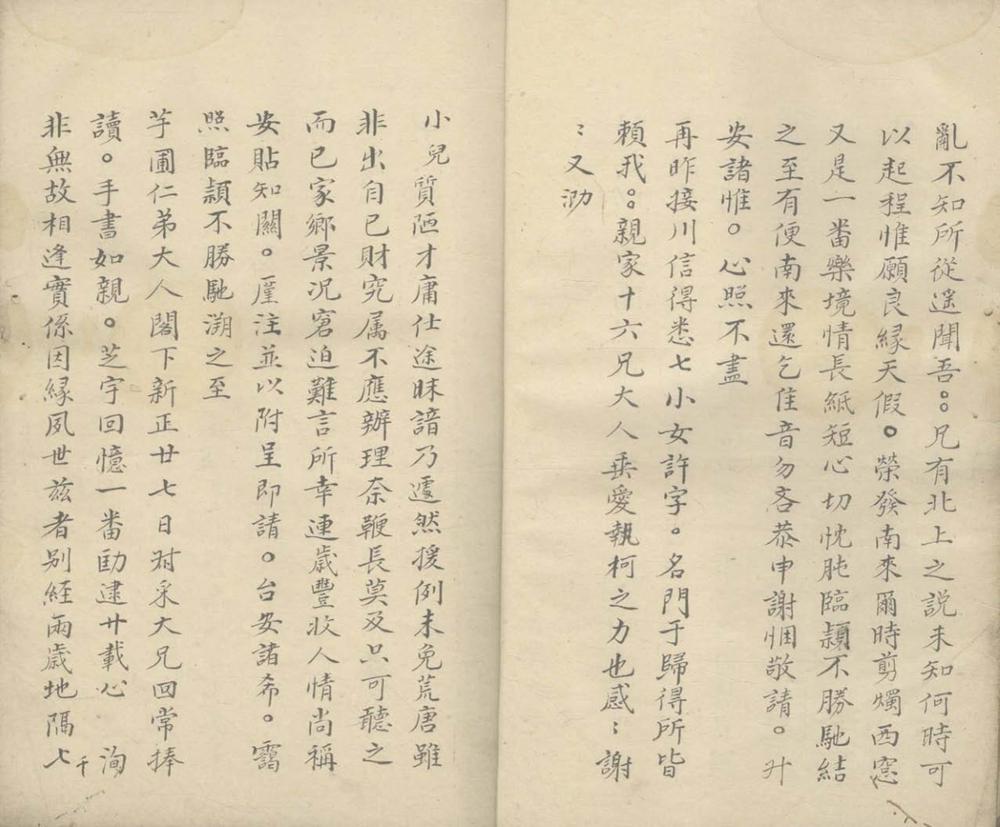 亂不知所從遥聞吾○○兄有北上之説未知何時可
以起程惟願良緣天假○榮發南來爾時剪燭西窓
又是一番樂境情長紙短心切忱肫臨頴不勝馳結
之至有便南來還乞佳音勿吝恭申謝悃敬請○升
安諸惟○心照不盡
再昨接川信得悉七小女許字○名門于歸得所皆
頼我○○親家十六兄大人垂愛執柯之力也感〻謝
〻又泐
小兒質陋才庸仕途昧諳乃遽然援例未免荒唐雖
非出自已財究属不應辦理奈鞭長莫及只可聽之
而已家鄉景况窘迫難言所幸連歲豐收人情尚稱
安貼知關○廑注並以附呈即請○台安諸希○靄
照臨頴不勝馳溯之至
芋圃仁弟大人閣下新正廿七日對采大兄回常捧
讀○手書如親○芝宇回憶一番勖逮廿載心洵
非無故相逢實係因緣夙世兹者别經兩歲地隔七千